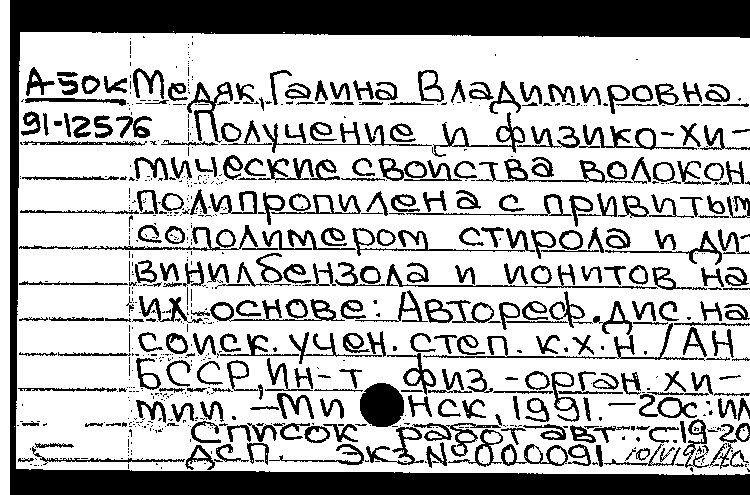 А-50к Медяк, Галина Владимировна.
91-12576 Получение и физико-хи-
мические свойства волокон
полипропилена с привитым
сополимером стирола и ди-
винилбензола и ионитов на
их основе: Автореф. дис. на
соиск. учен. степ. к.х.н. / АН
БССР, Ин-т физ.-орган. хи-
мии. - Минск, 1991. - 20с: ил
Список работ авт.: с. 19-20
ДСП. Экз № 000091.